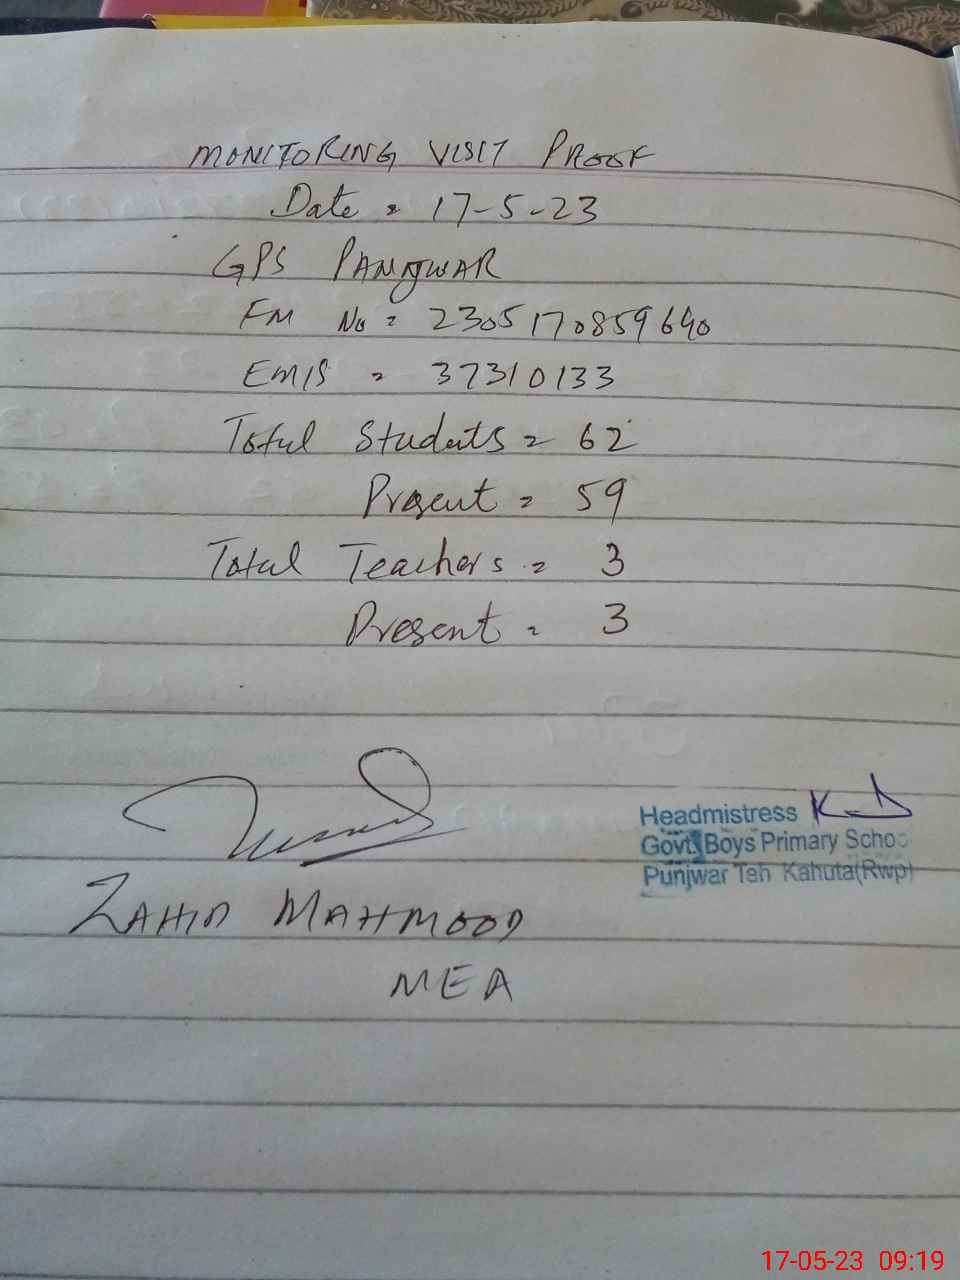 MONITORING VISIT PROOF
Date = 17-5-23
GPS PANJWAR
FM No = 2305170859640
EMIS = 37310133
Total Students = 62
Present = 59
Total Teachers = 3
Present = 3
ZAHID MAHMOOD
MEA
Headmistress
Govt. Boys Primary School
Punjwar Teh Kahuta(Rwp)
17-05-23 09:19